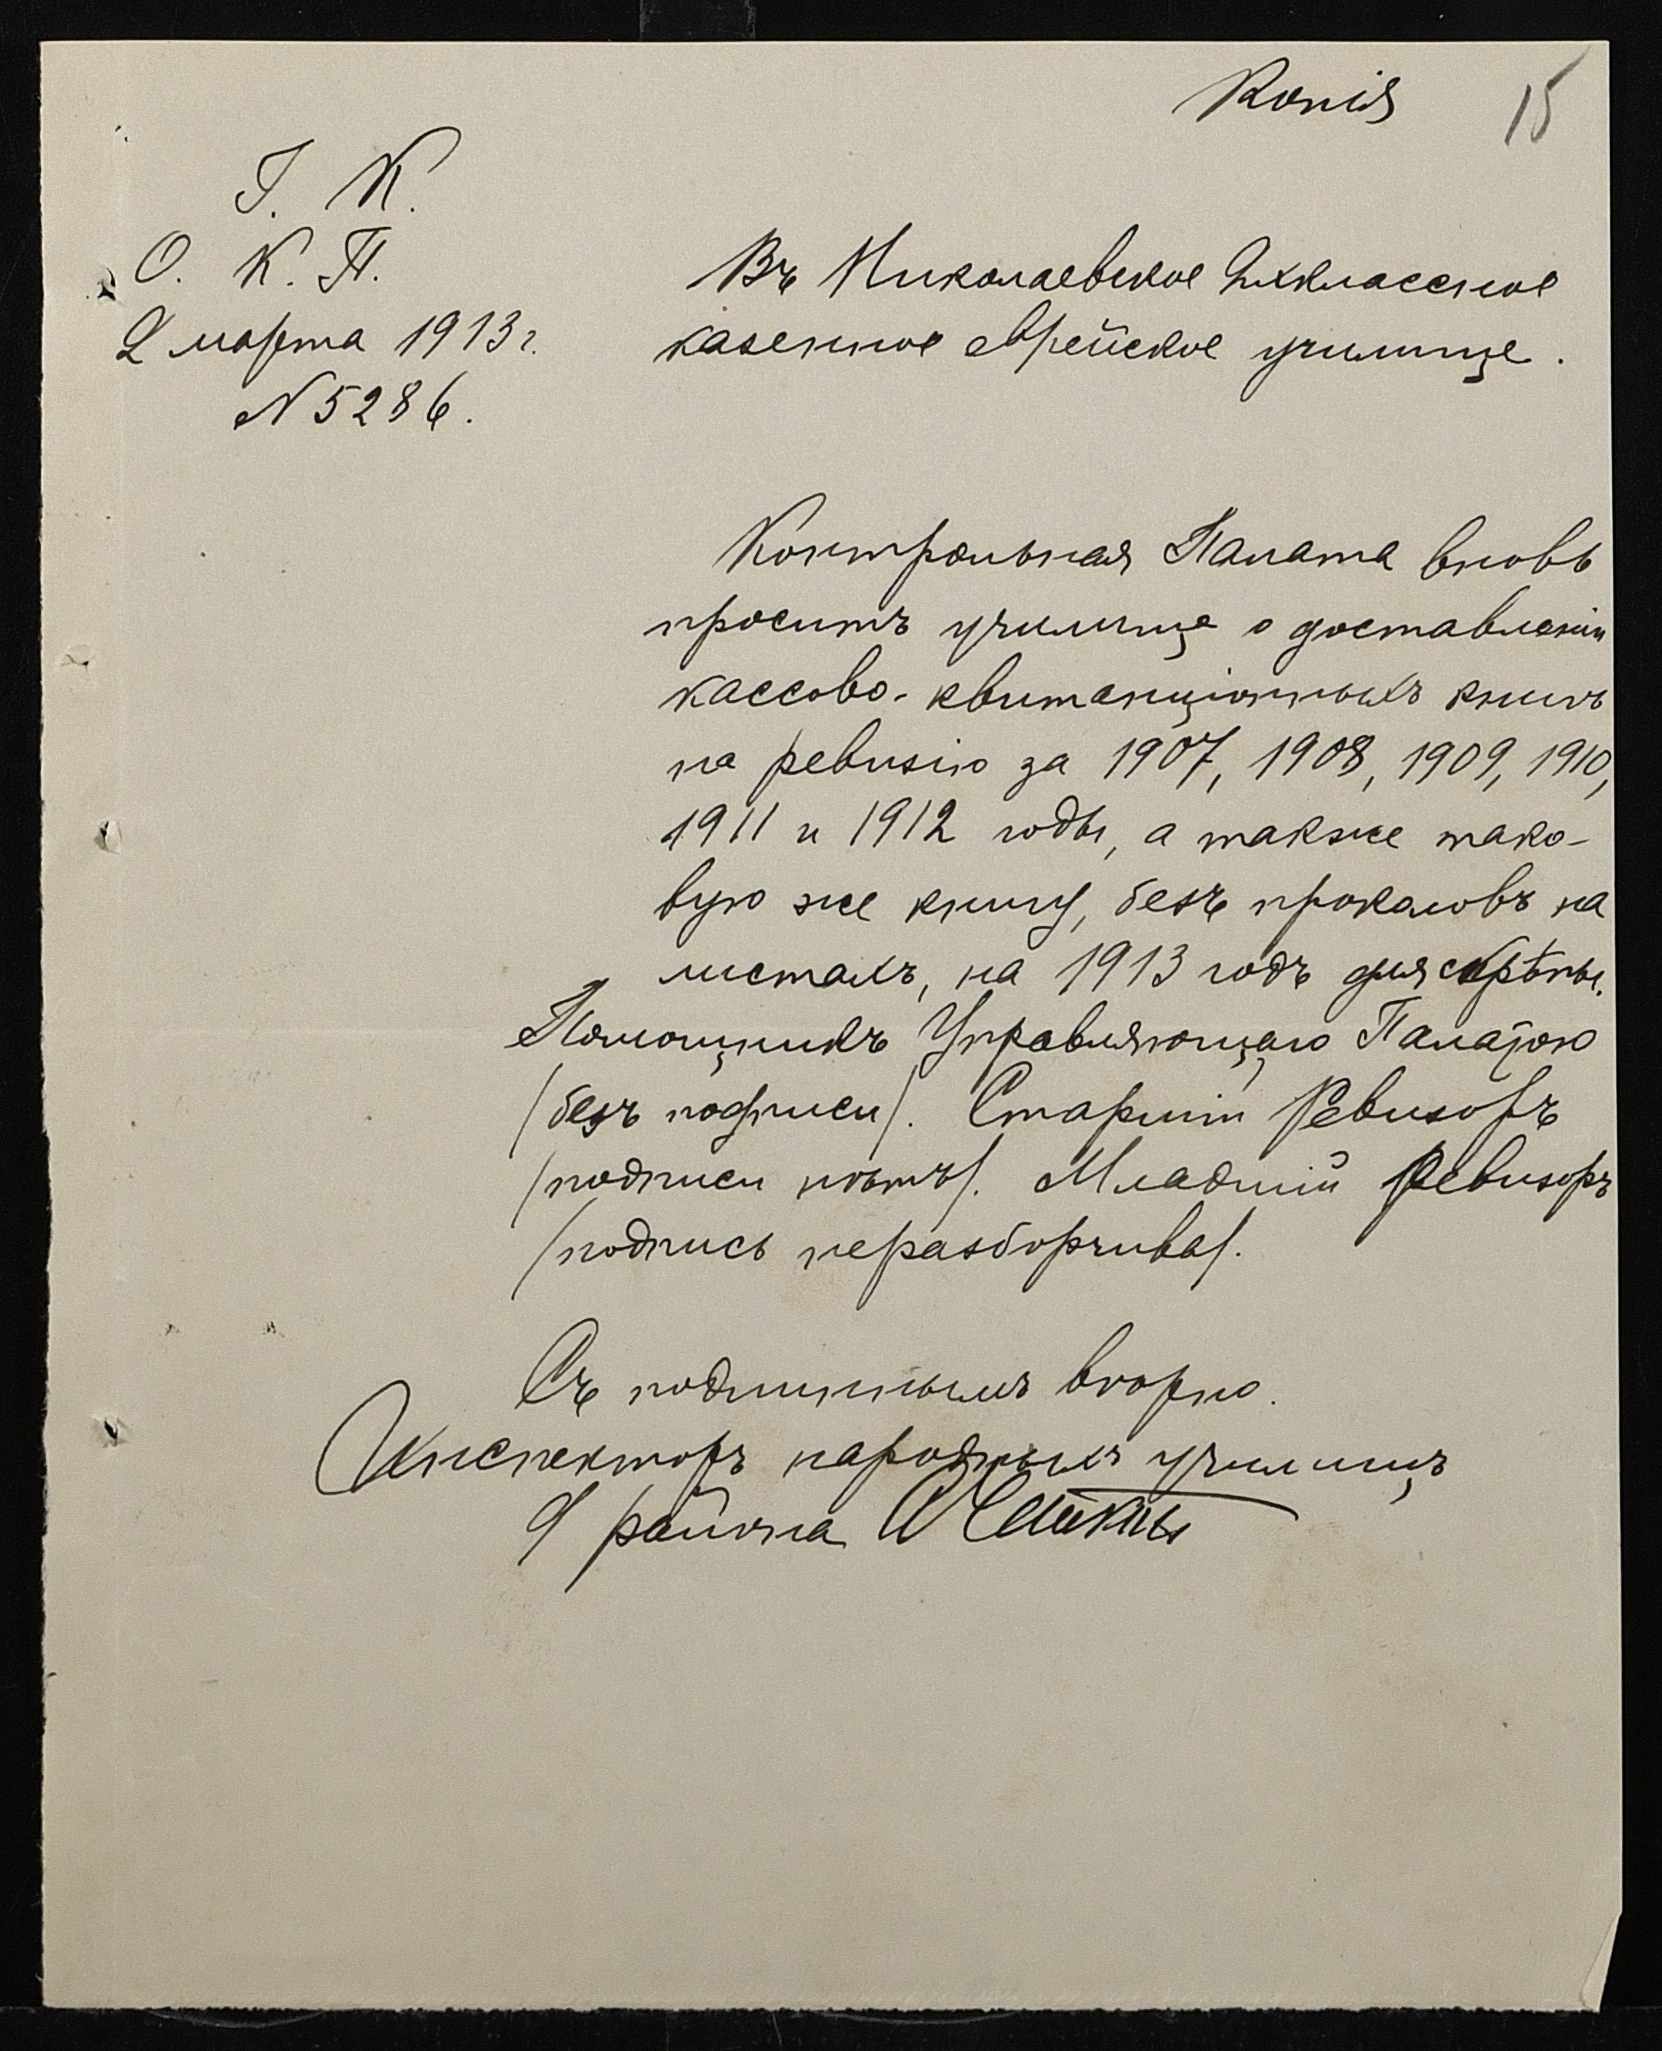 Копія 15
Г. К.
О. К. П.
2 марта 1913 г.
N 5286.
Въ Николаевское 2хклассное
казенное еврейское училище.
Контрольная Палата вновь
проситъ училище о доставленіи
кассово-квитанціонныхъ книгъ
на ревизію за 1907, 1908, 1909, 1910,
1911 и 1912 годы, а также тако-
вую же книгу, безъ проколовъ на
листахъ, на 1913 годъ для скрѣпы.
Помощникъ Управляющаго Палатою
/безъ подписи/. Старшій Ревизоръ
/подписи нѣтъ/. Младшій Ревизоръ
/подпись неразборчива/.
Съ подлиннымъ вѣрно.
Инспекторъ народныхъ училищъ
района